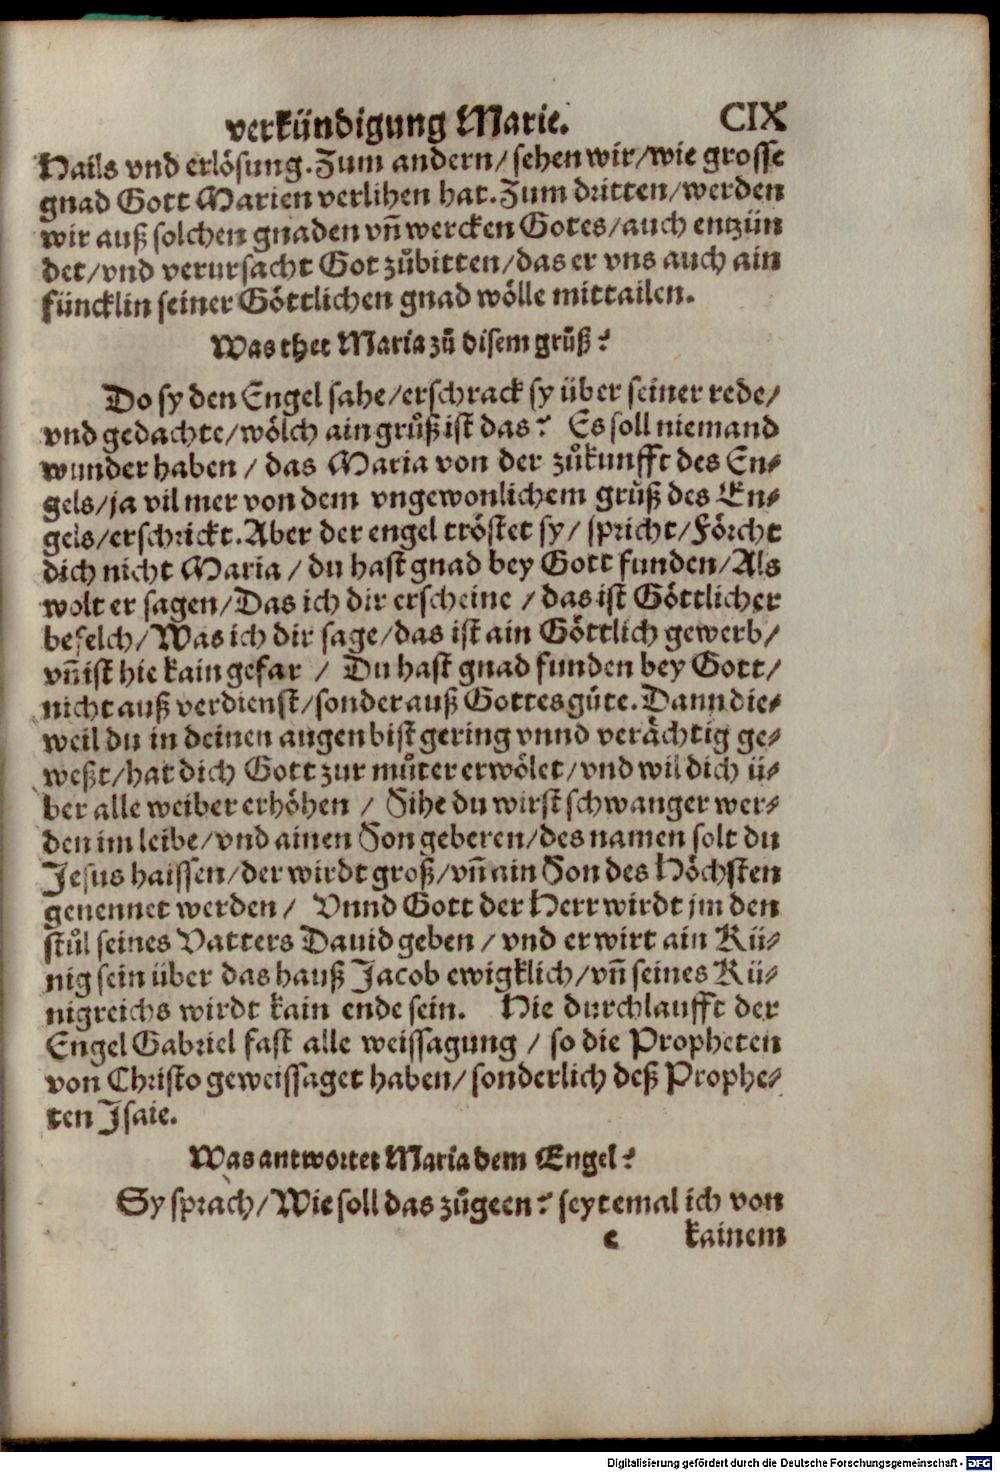 verkündigung Marie. CIX
Hails vnd erlösung. Zum andern/ sehen wir/ wie grosse
gnad Gott Marien verlihen hat. Zum dritten/ werden
wir auß solchen gnaden vñ wercken Gotes/ auch entzün
det/ vnd verursacht Got zůbitten/ das er vns auch ain
füncklin seiner Göttlichen gnad wölle mittailen.
Was thet Maria zů disem grůß?
Do sy den Engel sahe/ erschrack sy über seiner rede/
vnd gedachte/ wölch ain grůß ist das? Es soll niemand
wunder haben/ das Maria von der zůkunfft des En⸗
gels/ ja vil mer von dem vngewonlichem grůß des En⸗
gels/ erschrickt. Aber der engel tröstet sy/ spricht/ Förcht
dich nicht Maria/ du hast gnad bey Gott funden/ Als
wolt er sagen/ Das ich dir erscheine/ das ist Göttlicher
befelch/ Was ich dir sage/ das ist ain Göttlich gewerb/
vñ ist hie kain gefar/ Du hast gnad funden bey Gott/
nicht auß verdienst/ sonder auß Gottes güte. Dann die⸗
weil du in deinen augen bist gering vnnd verächtig ge⸗
weßt/ hat dich Gott zur můter erwölet/ vnd wil dich ü⸗
ber alle weiber erhöhen/ Sihe du wirst schwanger wer⸗
den im leibe/ vnd ainen Son geberen/ des namen solt du
Jesus haissen/ der wirdt groß/ vñ ain Son des Höchsten
genennet werden/ Vnnd Gott der Herr wirdt jm den
stůl seines Vatters Dauid geben/ vnd er wirt ain Kü⸗
nig sein über das hauß Jacob ewigklich/ vñ seines Kü⸗
nigreichs wirdt kain ende sein. Hie durchlaufft der
Engel Gabriel fast alle weissagung/ so die Propheten
von Christo geweissaget haben/ sonderlich deß Prophe⸗
ten Jsaie.
Was antwortet Maria dem Engel?
Sy sprach/ Wie soll das zůgeen? seytemal ich von
e kainem
Digitalisierung gefördert durch die Deutsche Forschungsgemeinschaft - DFG